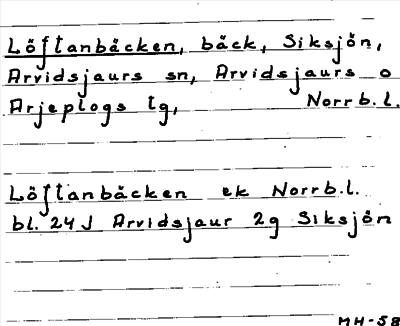 Löftanbäcken, bäck, Siksjön,
Arvidsjaurs sn, Arvidsjaurs o
Arjeplogs lg, Norrb.l.
Löftanbäcken ek Norrb.l.
bl. 24J Arvidsjaur 2g Siksjön
MH-58